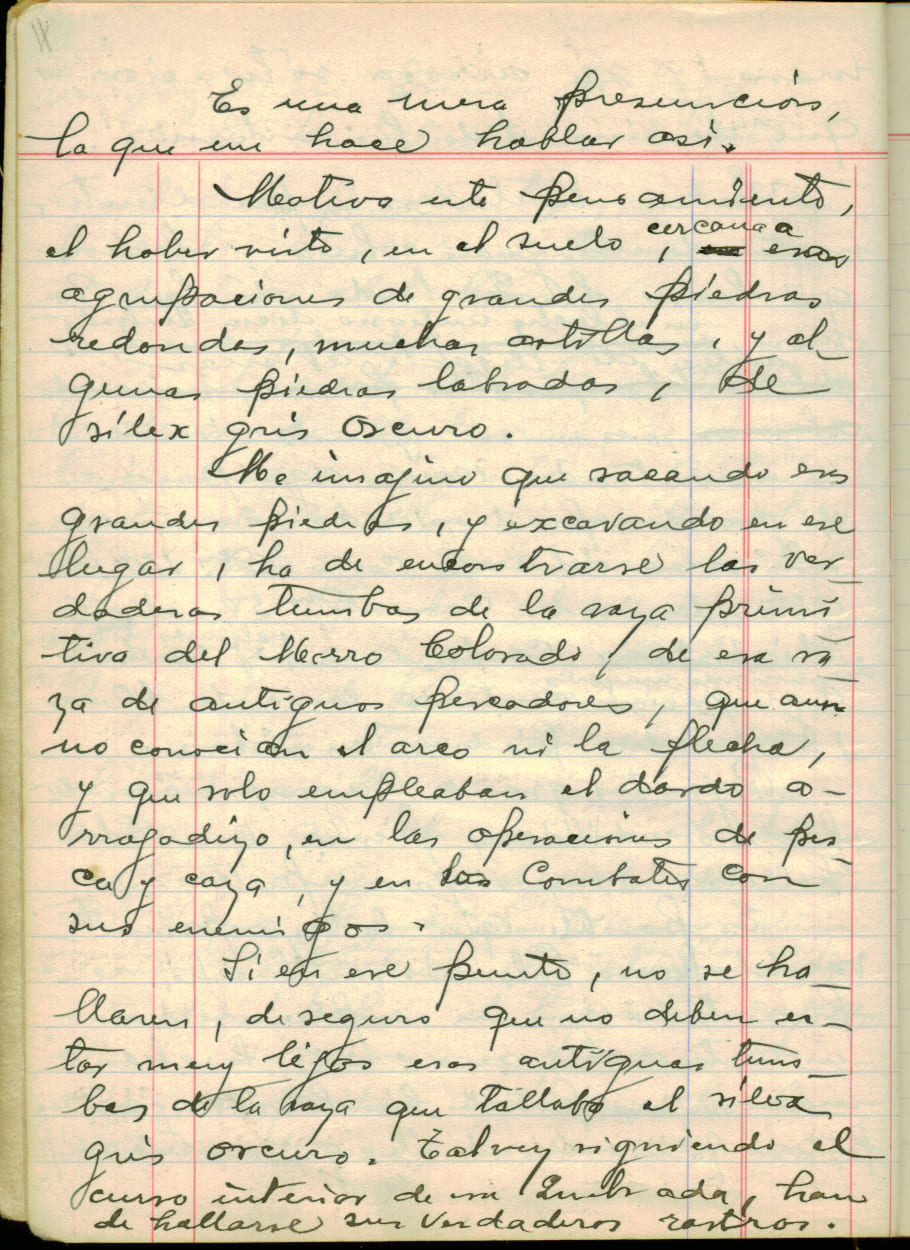 Es una mera presunción,
la que me hace hablar así.
Motiva este pensamiento,
el haber visto, en el suelo, cercana a esas
agrupaciones de grandes piedras
redondas, muchas astillas, y al-
gunas piedras labradas, de
sílex gris oscuro.
Me imagino que sacando esas
grandes piedras, y excavando en ese
lugar, ha de encontrarse las ver-
daderas tumbas de la raza primi-
tiva del Morro Colorado, de esa ra-
za de antiguos pescadores, que aun
no conocian el arco ni la flecha,
y que solo empleaban el dardo a-
rrogadizo, en las operaciones de pes-
ca y caza, y en sus combates con
sus enemigos.
Si en ese punto, no se ha-
llaren, de seguro que no deben es-
tar muy lejos esas antiguas tum-
bas de la raza que tallaba el silex
gris oscuro. Talvez siguiendo el
curso interior de esa Quebrada, han
de hallarse sus verdaderos rastros.